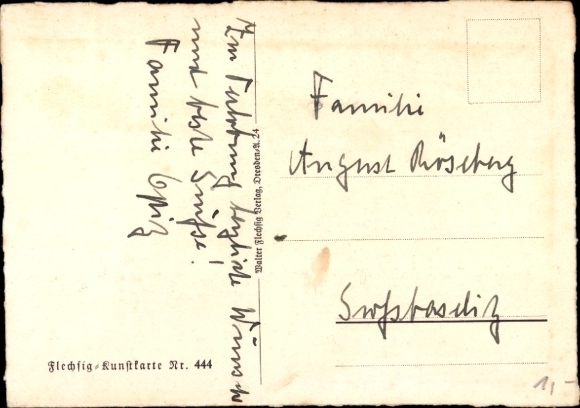 Zur Verlobung herzliche Wünsche
und beste Grüsse!
Familie Opitz
Walter Flechsig Verlag, Dresden-A. 24
Familie
August Röseberg
Grossbaselitz
Flechsig-Kunstkarte Nr. 444
1,-